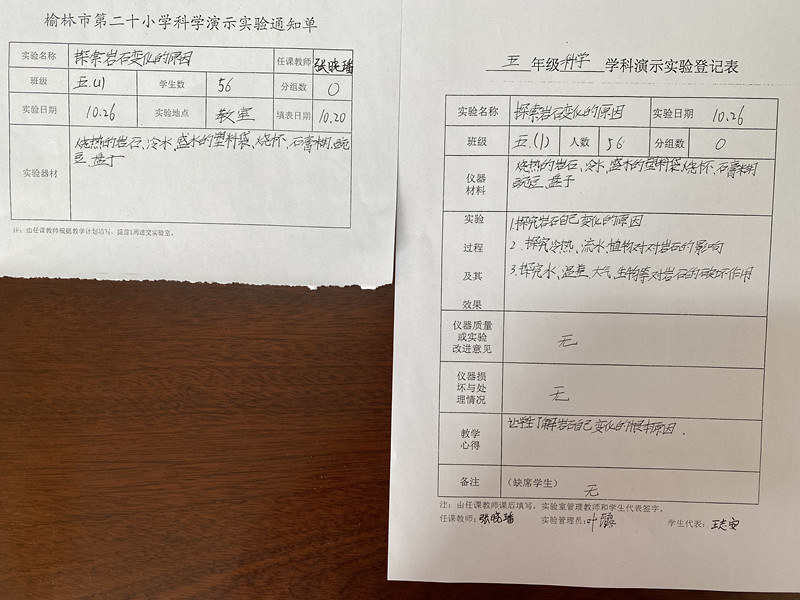 榆林市第二十小学科学演示实验通知单
实验名称 探索岩石变化的原因 任课教师 张晓璠
班级 五.(1) 学生数 56 分组数 0
实验日期 10.26 实验地点 教室 填表日期 10.20
实验器材 烧热的岩石、冷水、盛水的塑料袋、烧杯、石膏糊、豌
豆、盘子
注:由任课教师根据教学计划填写,提前1周送交实验室。
五 年级 科学 学科演示实验登记表
实验名称 探索岩石变化的原因 实验日期 10.26
班级 五.(1) 人数 56 分组数 0
仪器材料 烧热的岩石、冷水、盛水的塑料袋、烧杯、石膏糊、
豌豆、盘子
实验 1.探究岩石自己变化的原因
过程 2.探究冷热、流水、植物对对岩石的影响
及其 3.探究水、温度、大气、生物等对岩石的破坏作用
效果
仪器质量
或实验
改进意见 无
仪器损
坏与处
理情况 无
教学
心得 让学生了解岩石自己变化的原因.
备注 (缺席学生) 无
注:由任课教师课后填写,实验室管理教师和学生代表签字。
任课教师:张晓璠 实验管理员:叶 学生代表:王志安